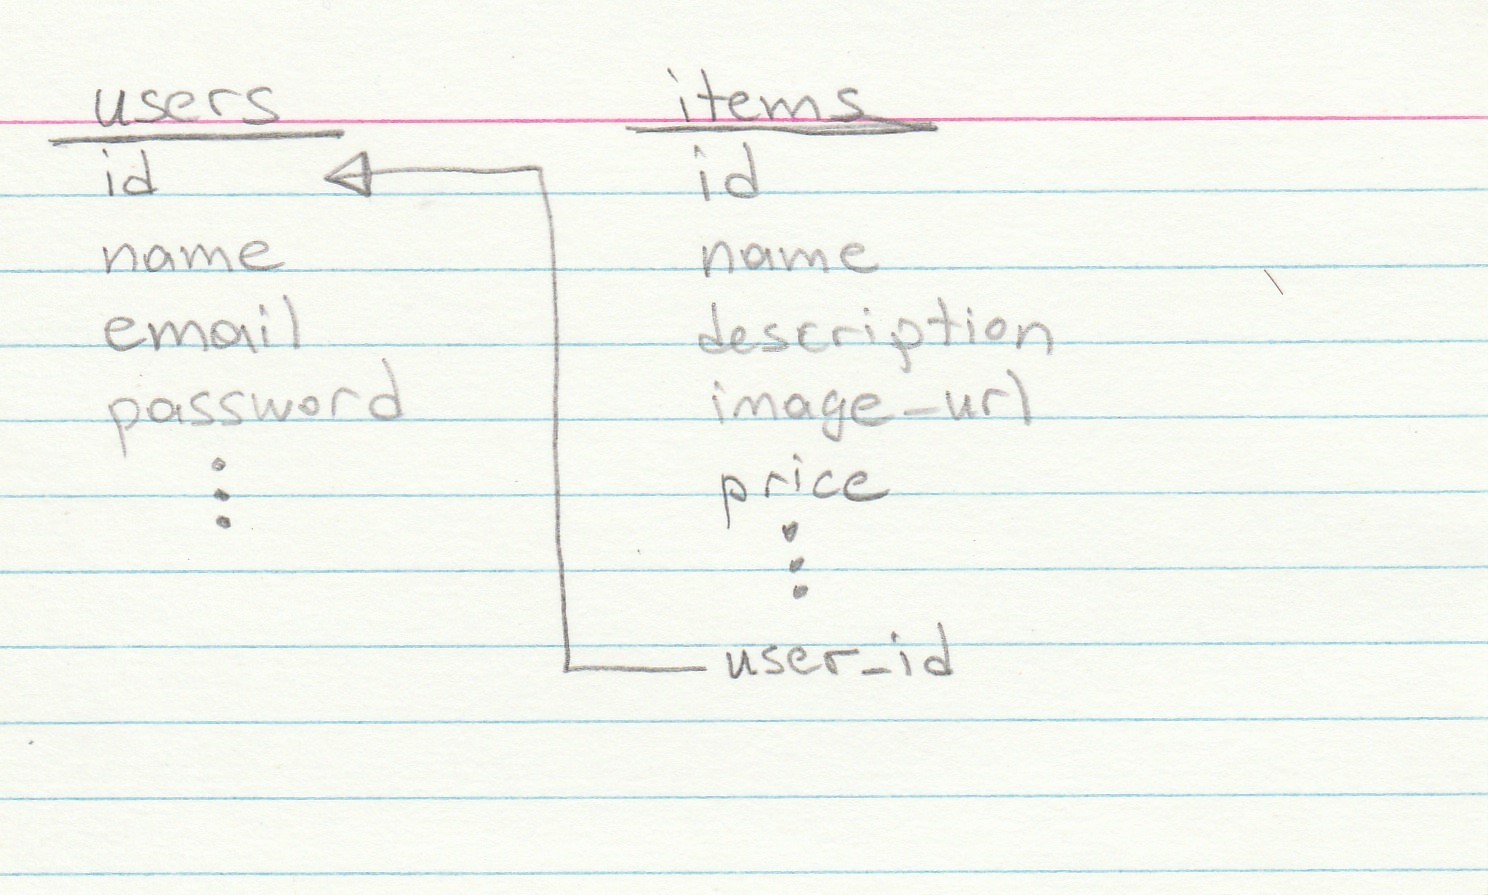 users
id
name
email
password
items
id
name
description
image-url
price
user-id